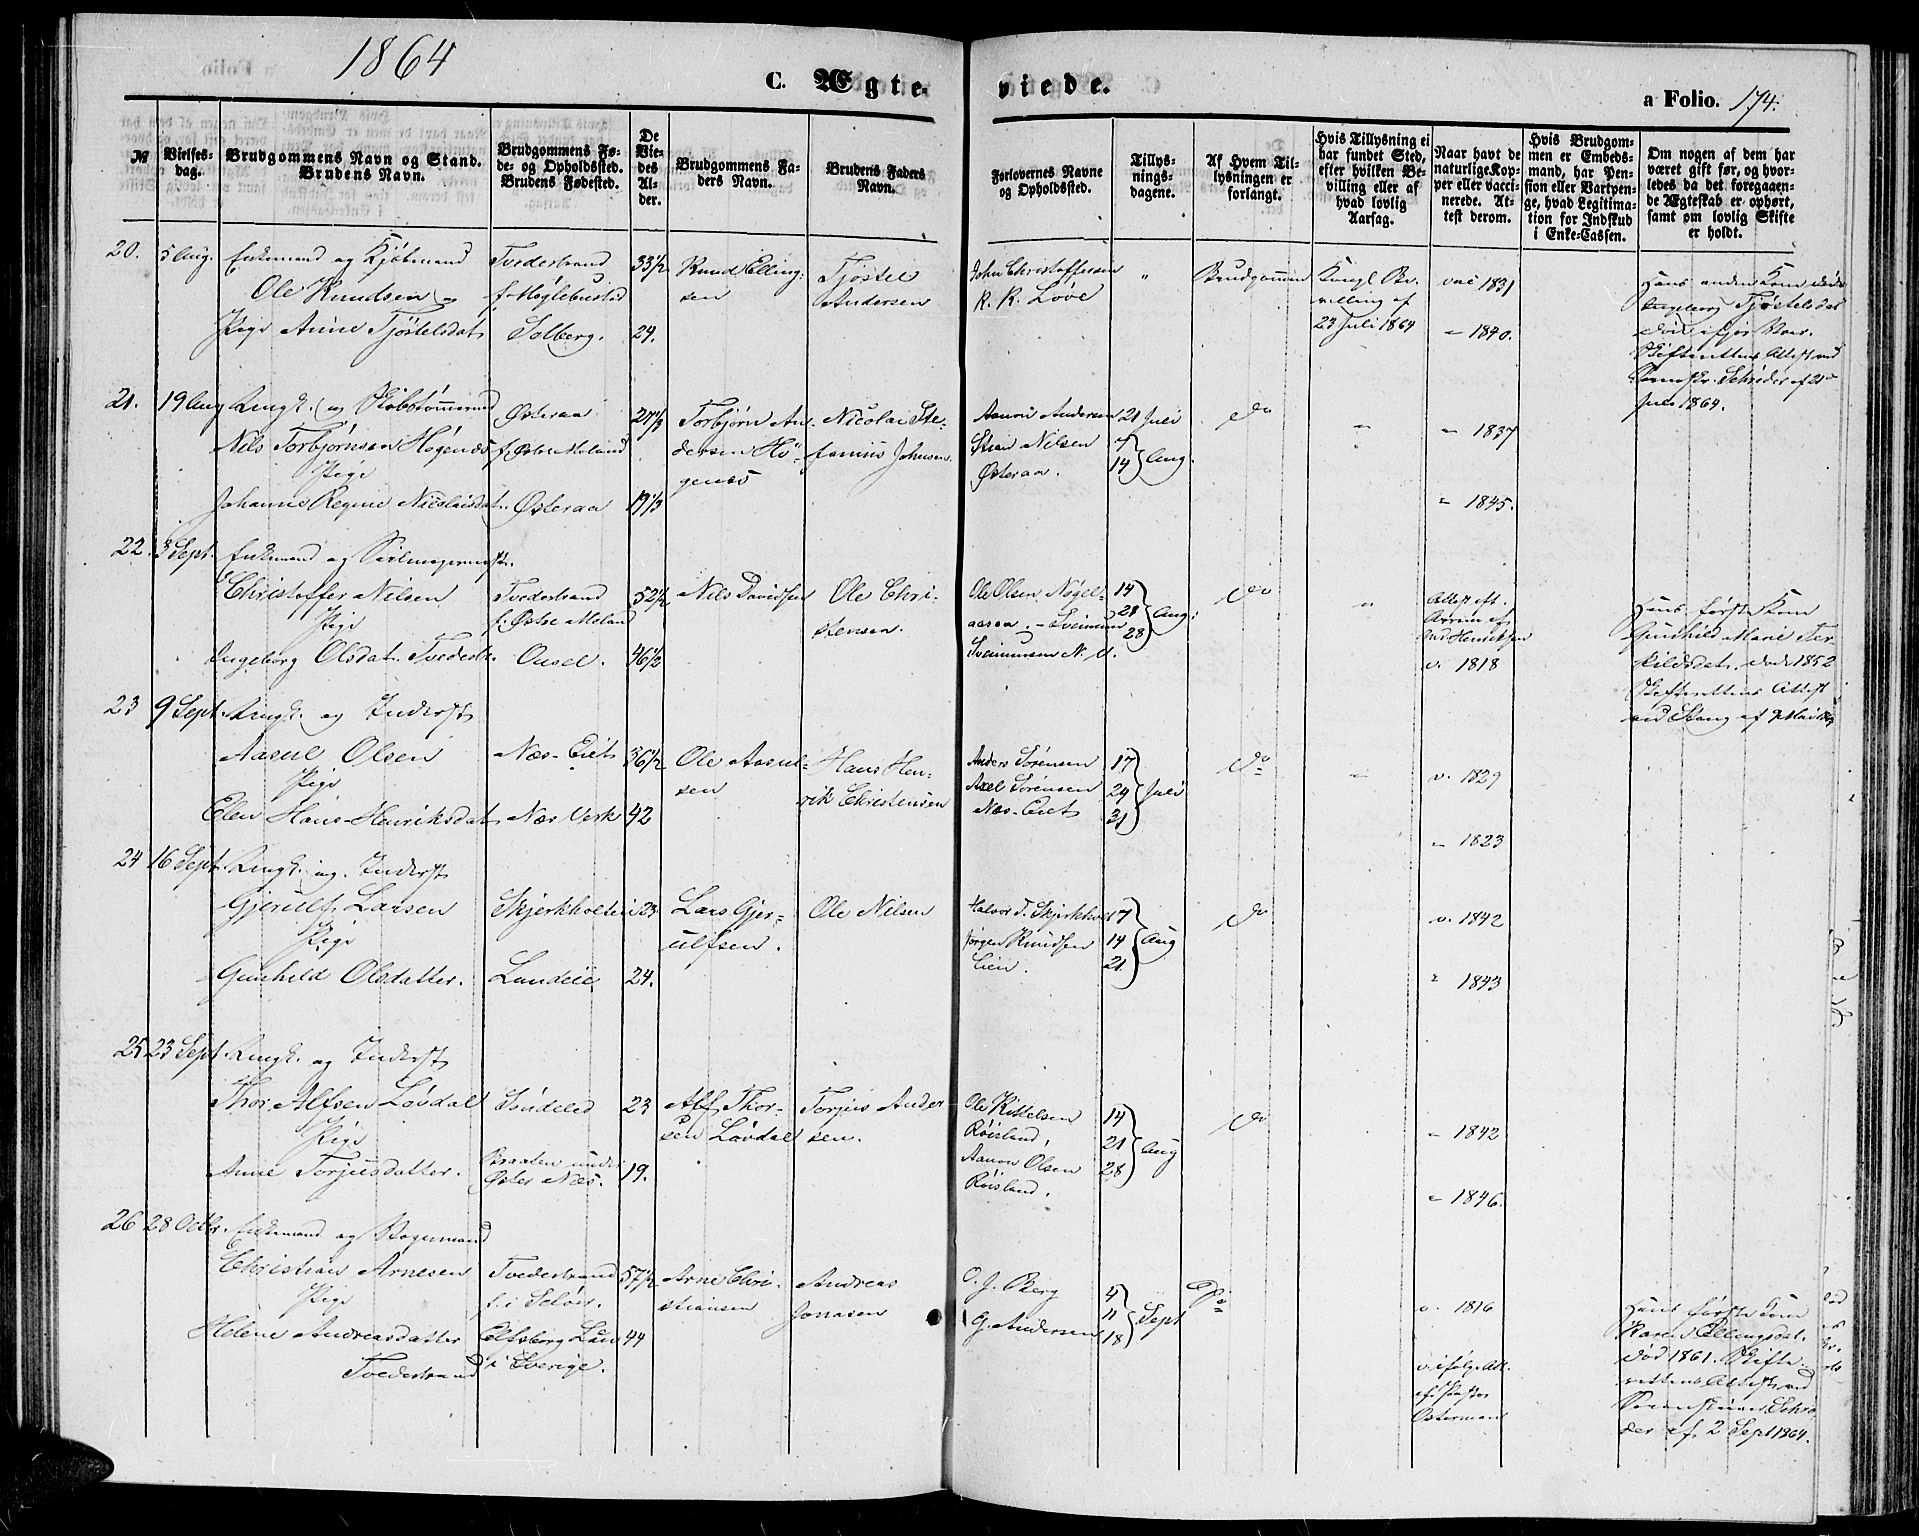 1864
C. Ægte-
viede.
a Folio. 174.
№
Vielses-
dag.
Brudgommens Navn og Stand.
Brudens Navn.
Brudgommens Fø-
de- og Opholdssted.
Brudens Fødested.
De
Vie-
des
Al-
der.
Brudgommens Fa-
ders Navn.
Brudens Faders
Navn.
Forlovernes Navne
og Opholdssted.
Tillys-
nings-
dagene.
Af Hvem Til-
lysningen er
forlangt.
Hvis Tillysning ei
har fundet Sted,
efter hvilken Be-
villing eller af
hvad lovlig
Aarsag.
Naar havt de
naturlige Kop-
per eller vacci-
nerede. At-
test derom.
Hvis Brudgom-
men er Embeds-
mand, har Pen-
sion eller Vartpen-
ge, hvad Legitima-
tion for Indskud
i Enke-Cassen.
Om nogen af dem har
været gift før, og hvor-
ledes da det foregaaen-
de Ægteskab er ophørt,
samt om lovlig Skifte
er holdt.
20. 5 Aug. Enkemand og Kjøbmand
Ole Knudsen
Pige Anne Tjøstelsdat.
Tvedestrand
f. Møglebustad
Solberg.
33 1/2
24.
Knud Elling-
sen
Tjøstel
Andersen
John Christoffersen
K. K. Løve
"
Brudgommen
Kongl Be-
villing af
23 Juli 1864
vac 1831
" 1840.
Hans anden Kone
Ingeborg Tjøstelsdat
død i fjor Vaar.
Skifterettens Attest ved
Sorenskr. Schrøder af 21
Juli 1864.
21. 19 Aug Ungk. og
Nils Torbjørnsen Høgenæs
Pige
Johanne Regine Nicolaisdat.
Østeraa
f. Østre Moland
Østeraa
27 1/3
19 1/3
Torbjørn An-
dersen Hø-
genæs
Nicolai Ste-
fanius Johnsen.
Aanon Andersen
Stian Nilsen
Østeraa.
21 Juli
7
14 Aug.
Do
"
" 1837
" 1845.
22. 3 Sept. Enkemand og Seilmagermest.
Christoffer Nilsen
Pige
Ingeborg Olsdat. Tvedestr.
Tvedestrand
f. Østre Moland
Onsel.
52 1/2
46 1/2
Nils Davidsen
Ole Chri-
stensen.
Ole Olsen Nøgel-
aasen. - Sveinum
Sveinunsen N. M.
14
21
28 Aug.
Do
"
Attest
v. 1818
Hans første Kone
Gunhild Marie Ter
kildsdat. død 1852
Skifterettens Attest
23 9 Sept. Ungk. og Inderst
Aasul Olsen
Pige
Elen Hans-Henriksdat
Næs-Eiet
Næs Verk
36 1/2
42
Ole Aasul-
sen
Hans Hen-
rik Christensen
Anders Sørensen
Axel Sørensen
Næs-Eiet
17
24
31 Juli
Do
"
v. 1829
" 1823
24 16 Sept. Ungk. og Inderst
Gjerulf Larsen
Pige
Gunhild Olsdatter.
Skjerkholtei
Lundeie
23
24.
Lars Gjer-
ulfsen.
Ole Nilsen
Halvor T. Skjerkholt
Jørgen Knudsen
Eien.
7
14
21 Aug
Do
v. 1842
" 1843
25 23 Sept. Ungk. og Inderst
Thor Alfsen Løvdal
Pige
Anne Torjusdatter.
Søndeled
Braaten under
Øster Næs.
23
19.
Alf Thor-
sen Løvdal
Torjus Ander
sen.
Ole Kittelsen
Røisland,
Aanon Olsen
Røisland.
14
21
28 Aug
Do
" 1842
" 1846.
26 28 Octbr. Enkemand og
Christian Arnesen
Pige
Helene Andreasdatter
Tvedestrand
Tvedestrand
f. i Seløer.
Elfsborg Län
i Sverige.
57 1/2
44
Arne Chri-
stiansen
Andreas
Jonasen
O. J. Berg
G. Andersen
4
11
18 Sept
Do
v. 1816
v. ifølge Att.
af Pastor
Ostermann
Hans første Kone
Karen Ellingsdat.
død 1861. Skifte-
rettens Attest ved
Sorenskriver Schrø-
der af 2 Sept 1864.